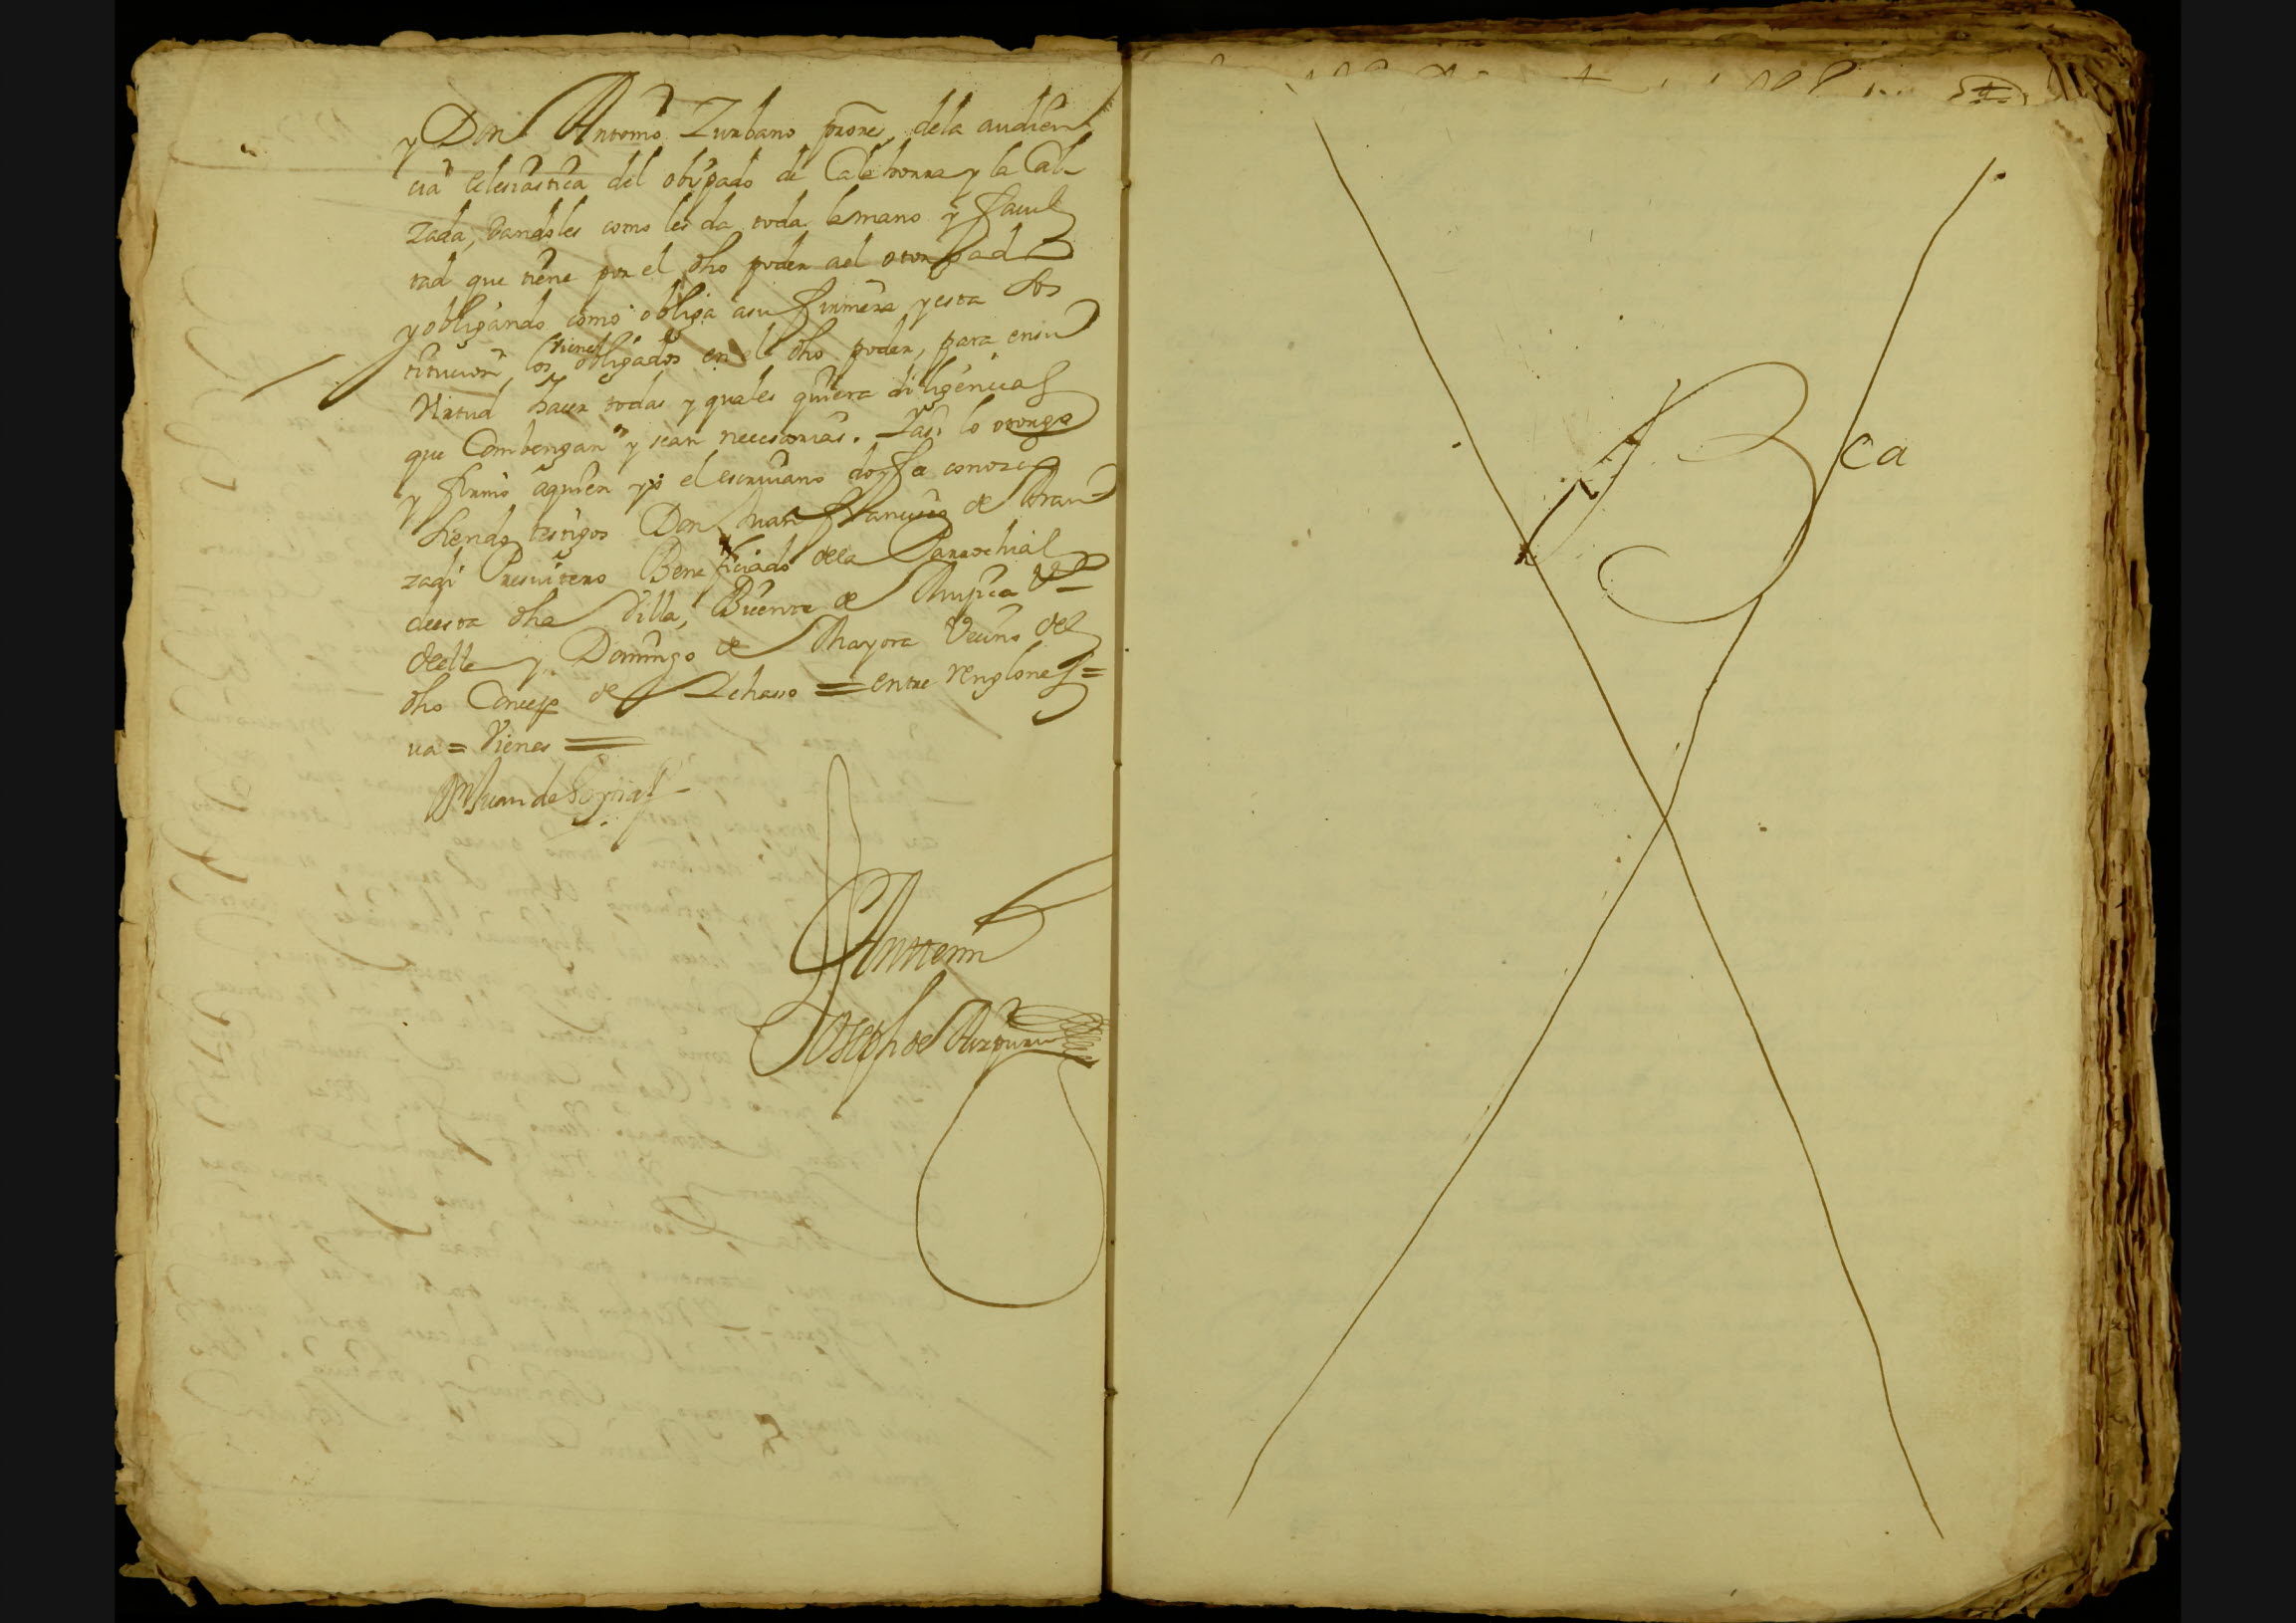 y Don Antonio Zurbano procre, dela audien
cia eclesiastica del obispado de Calahorra y la Cal
zada, dandoles como les da toda la mano y facul
tad que tiene por el dho poder ael otorgado
y obligando como obliga asu firmeza y esta sos
titucion, los vienes obligados en el dho poder, para ensu
Virtud hacer todas y quales quiera diligencias
que Combengan y sean necesarias. Y asi lo otorga
y firmo aquien yo el escriuano doy fee conozco
siendo testigos Don Juan Francisco de
zadi Presuitero Beneficiado dela Parrochial
deesta dha Villa, Vicente de
deella y Domingo de Mayora Vecino del
dho Concejo de = entre renglones =
va = Vienes =
Dn Juan de
Antemi
Joseph de Aizpuru
Bca